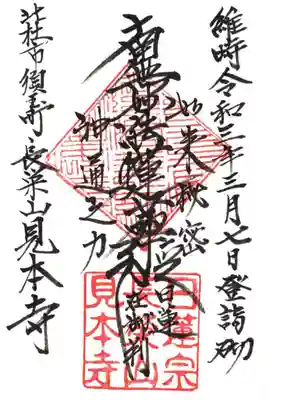 維時令和三年三月七日登詣砌
如来秘密
南無妙法蓮華経
神通之力
日蓮
在御判
長栄山見本寺
日蓮宗
長栄山
見本寺